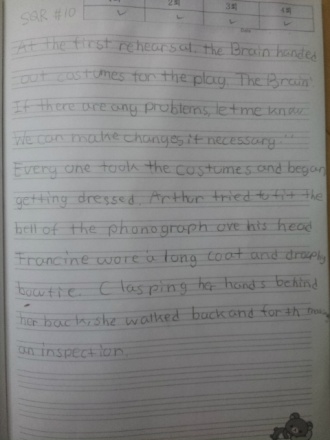 SSR #10
2회 3회 4회
At the first rehearsal. the Brain handed
out costumes for the play. The Brain"
If there are any problems, let me know
We can make changes, if necessary."
Every one took the costumes and began
getting dressed. Arthur tried to fit the
bell of the phonograph ove his head
Francine wore a long coat and droopy
bowtie. Clasping her hands behind
her back, she walked back and forth
an inspection.